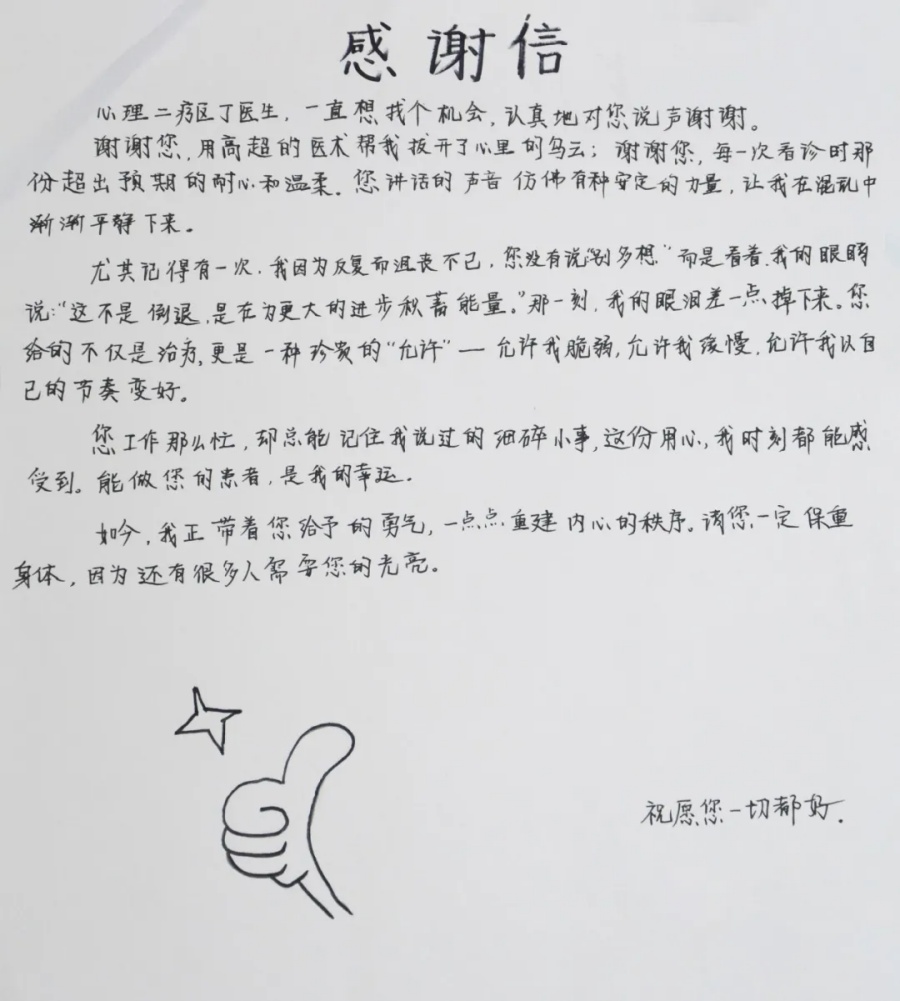 感谢信
心理二病区丁医生，一直想找个机会，认真地对您说声谢谢。
谢谢您，用高超的医术帮我拨开了心里的乌云；谢谢您，每一次看诊时那
份超出预期的耐心和温柔。您讲话的声音仿佛有种安定的力量，让我在混乱中
渐渐平静下来。
尤其记得有一次，我因为反复而沮丧不已，您没有说“别多想”而是看着我的眼睛
说：“这不是倒退，是在为更大的进步积蓄能量。”那一刻，我的眼泪差一点掉下来。您
给的不仅是治疗，更是一种珍贵的“允许”—允许我脆弱，允许我缓慢，允许我以自
己的节奏变好。
您工作那么忙，却总能记住我说过的细碎小事，这份用心，我时刻都能感
受到。能做您的患者，是我的幸运。
如今，我正带着您给予的勇气，一点点重建内心的秩序。请您一定保重
身体，因为还有很多人需要您的光亮。
祝愿您一切都好.